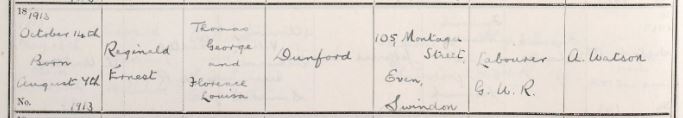 18 1913
October 14th
Born
August 7th
No. 1913
Reginald
Ernest
Thomas
George
and
Florence
Louisa
Dunford
105, Montagu
Street,
Even,
Swindon
Labourer
G. W. R.
A. Watson